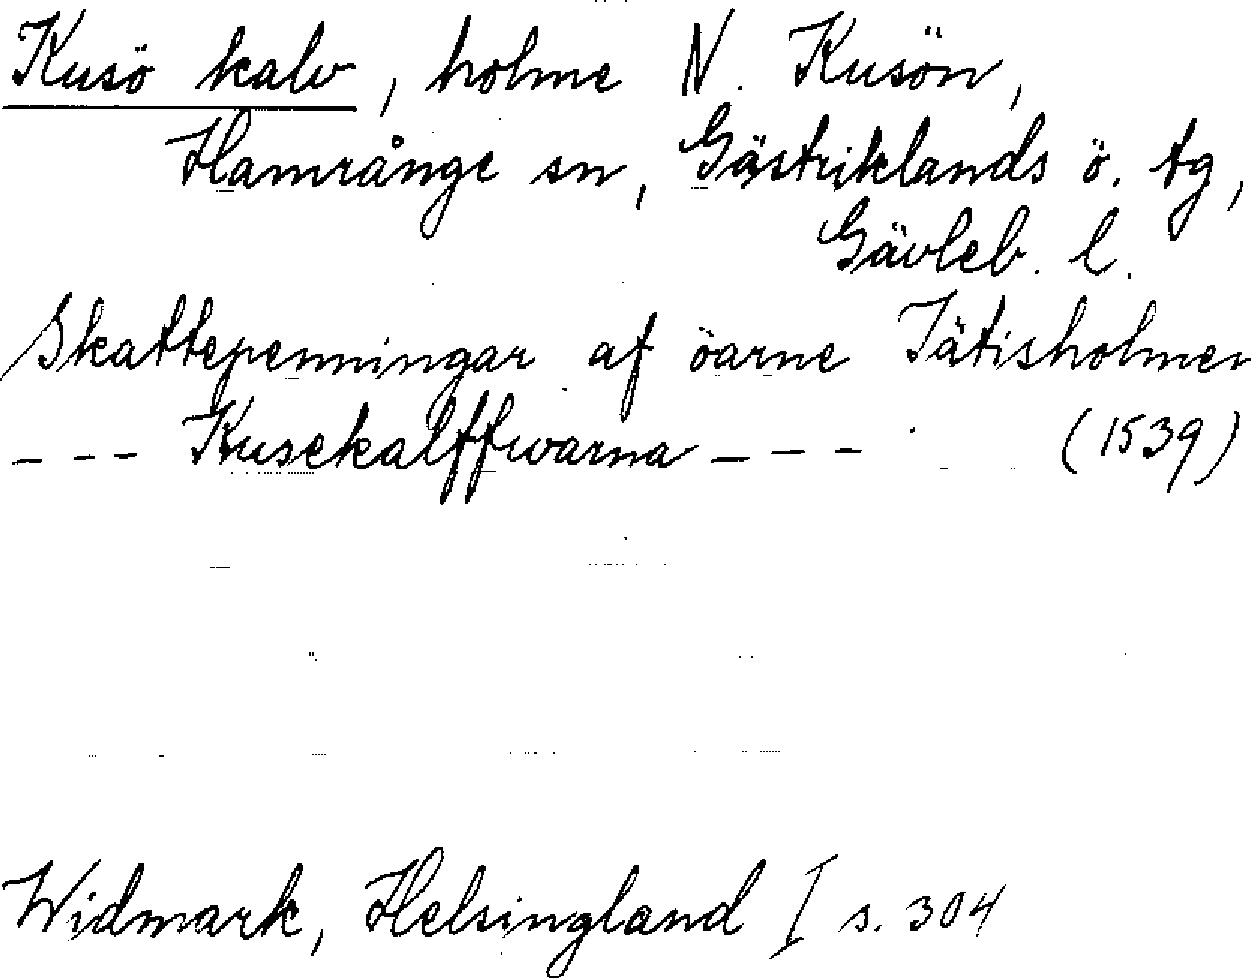 Kusö kalv, holme N. Kusön,
Hamrånge sn, Gästriklands ö. tg,
Gävleb. l.
Skattepenningar af öarne Tätisholmen
--- Kusekalffwarna --- (1539)
Widmark, Helsingland I s. 304